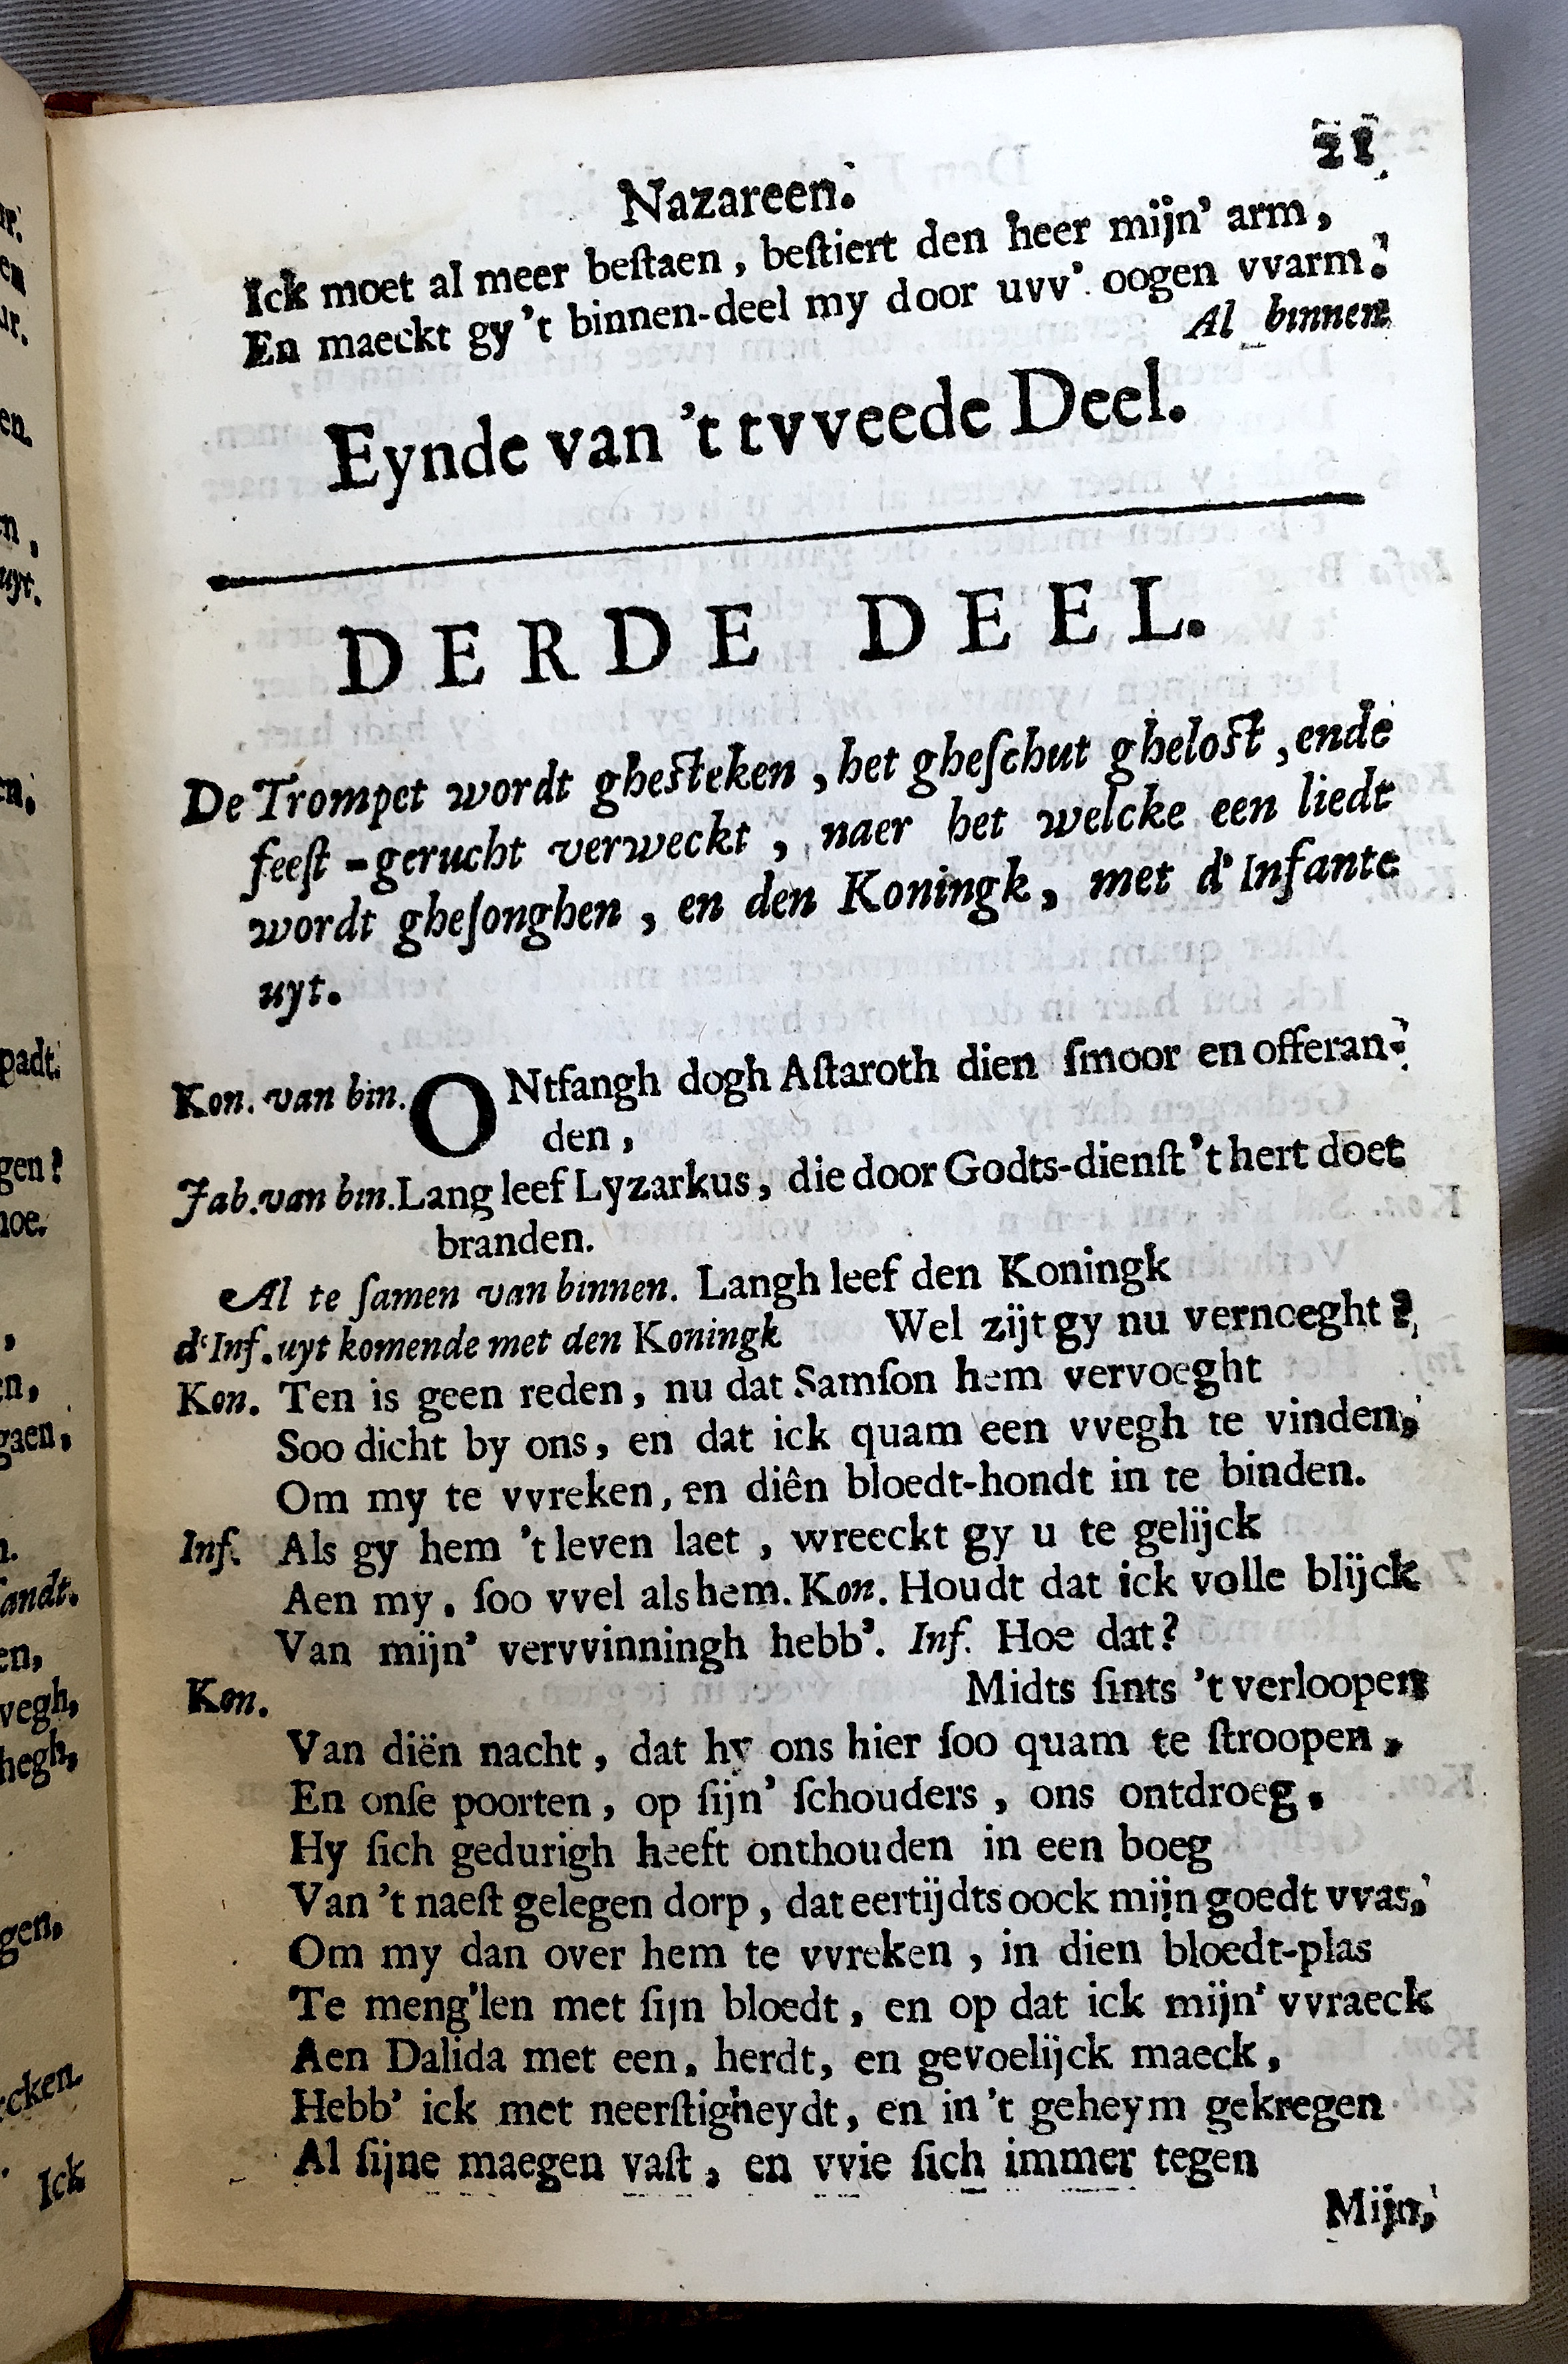 21
Nazareen.
Ick moet al meer beſtaen, beſtiert den heer mijn' arm,
En maeckt gy 't binnen-deel my door uvv' oogen vvarm.
Al binnen
Eynde van 't tvveede Deel.
DERDE DEEL.
De Trompet wordt gheſteken, het gheſchut gheloſt, ende
feeſt-gerucht verweckt, naer het welcke een liedt
wordt gheſonghen, en den Koningk, met d'Infante
uyt.
Kon. van bin. ONtfangh dogh Aſtaroth dien ſmoor en offeran-
den,
Jab. van bin. Lang leef Lyzarkus, die door Godts-dienſt 't hert doet
branden.
Al te ſamen van binnen. Langh leef den Koningk
d'Inf. uyt komende met den Koningk Wel zijt gy nu vernoeght?
Kon. Ten is geen reden, nu dat Samſon hem vervoeght
Soo dicht by ons, en dat ick quam een vvegh te vinden,
Om my te vvreken, en diên bloedt-hondt in te binden.
Inf. Als gy hem 't leven laet, wreeckt gy u te gelijck
Aen my. ſoo vvel als hem. Kon. Houdt dat ick volle blijck
Van mijn' vervvinningh hebb'. Inf. Hoe dat?
Kon. Midts ſints 't verloopen
Van diën nacht, dat hy ons hier ſoo quam te ſtroopen,
En onſe poorten, op ſijn' ſchouders, ons ontdroeg.
Hy ſich gedurigh heeft onthouden in een boeg
Van 't naeſt gelegen dorp, dat eertijdts oock mijn goedt vvas.
Om my dan over hem te vvreken, in dien bloedt-plas
Te meng'len met ſijn bloedt, en op dat ick mijn' vvraeck
Aen Dalida met een, herdt, en gevoelijck maeck,
Hebb' ick met neerſtigheydt, en in 't geheym gekregen
Al ſijne maegen vaſt, en vvie ſich immer tegen
Mijn,